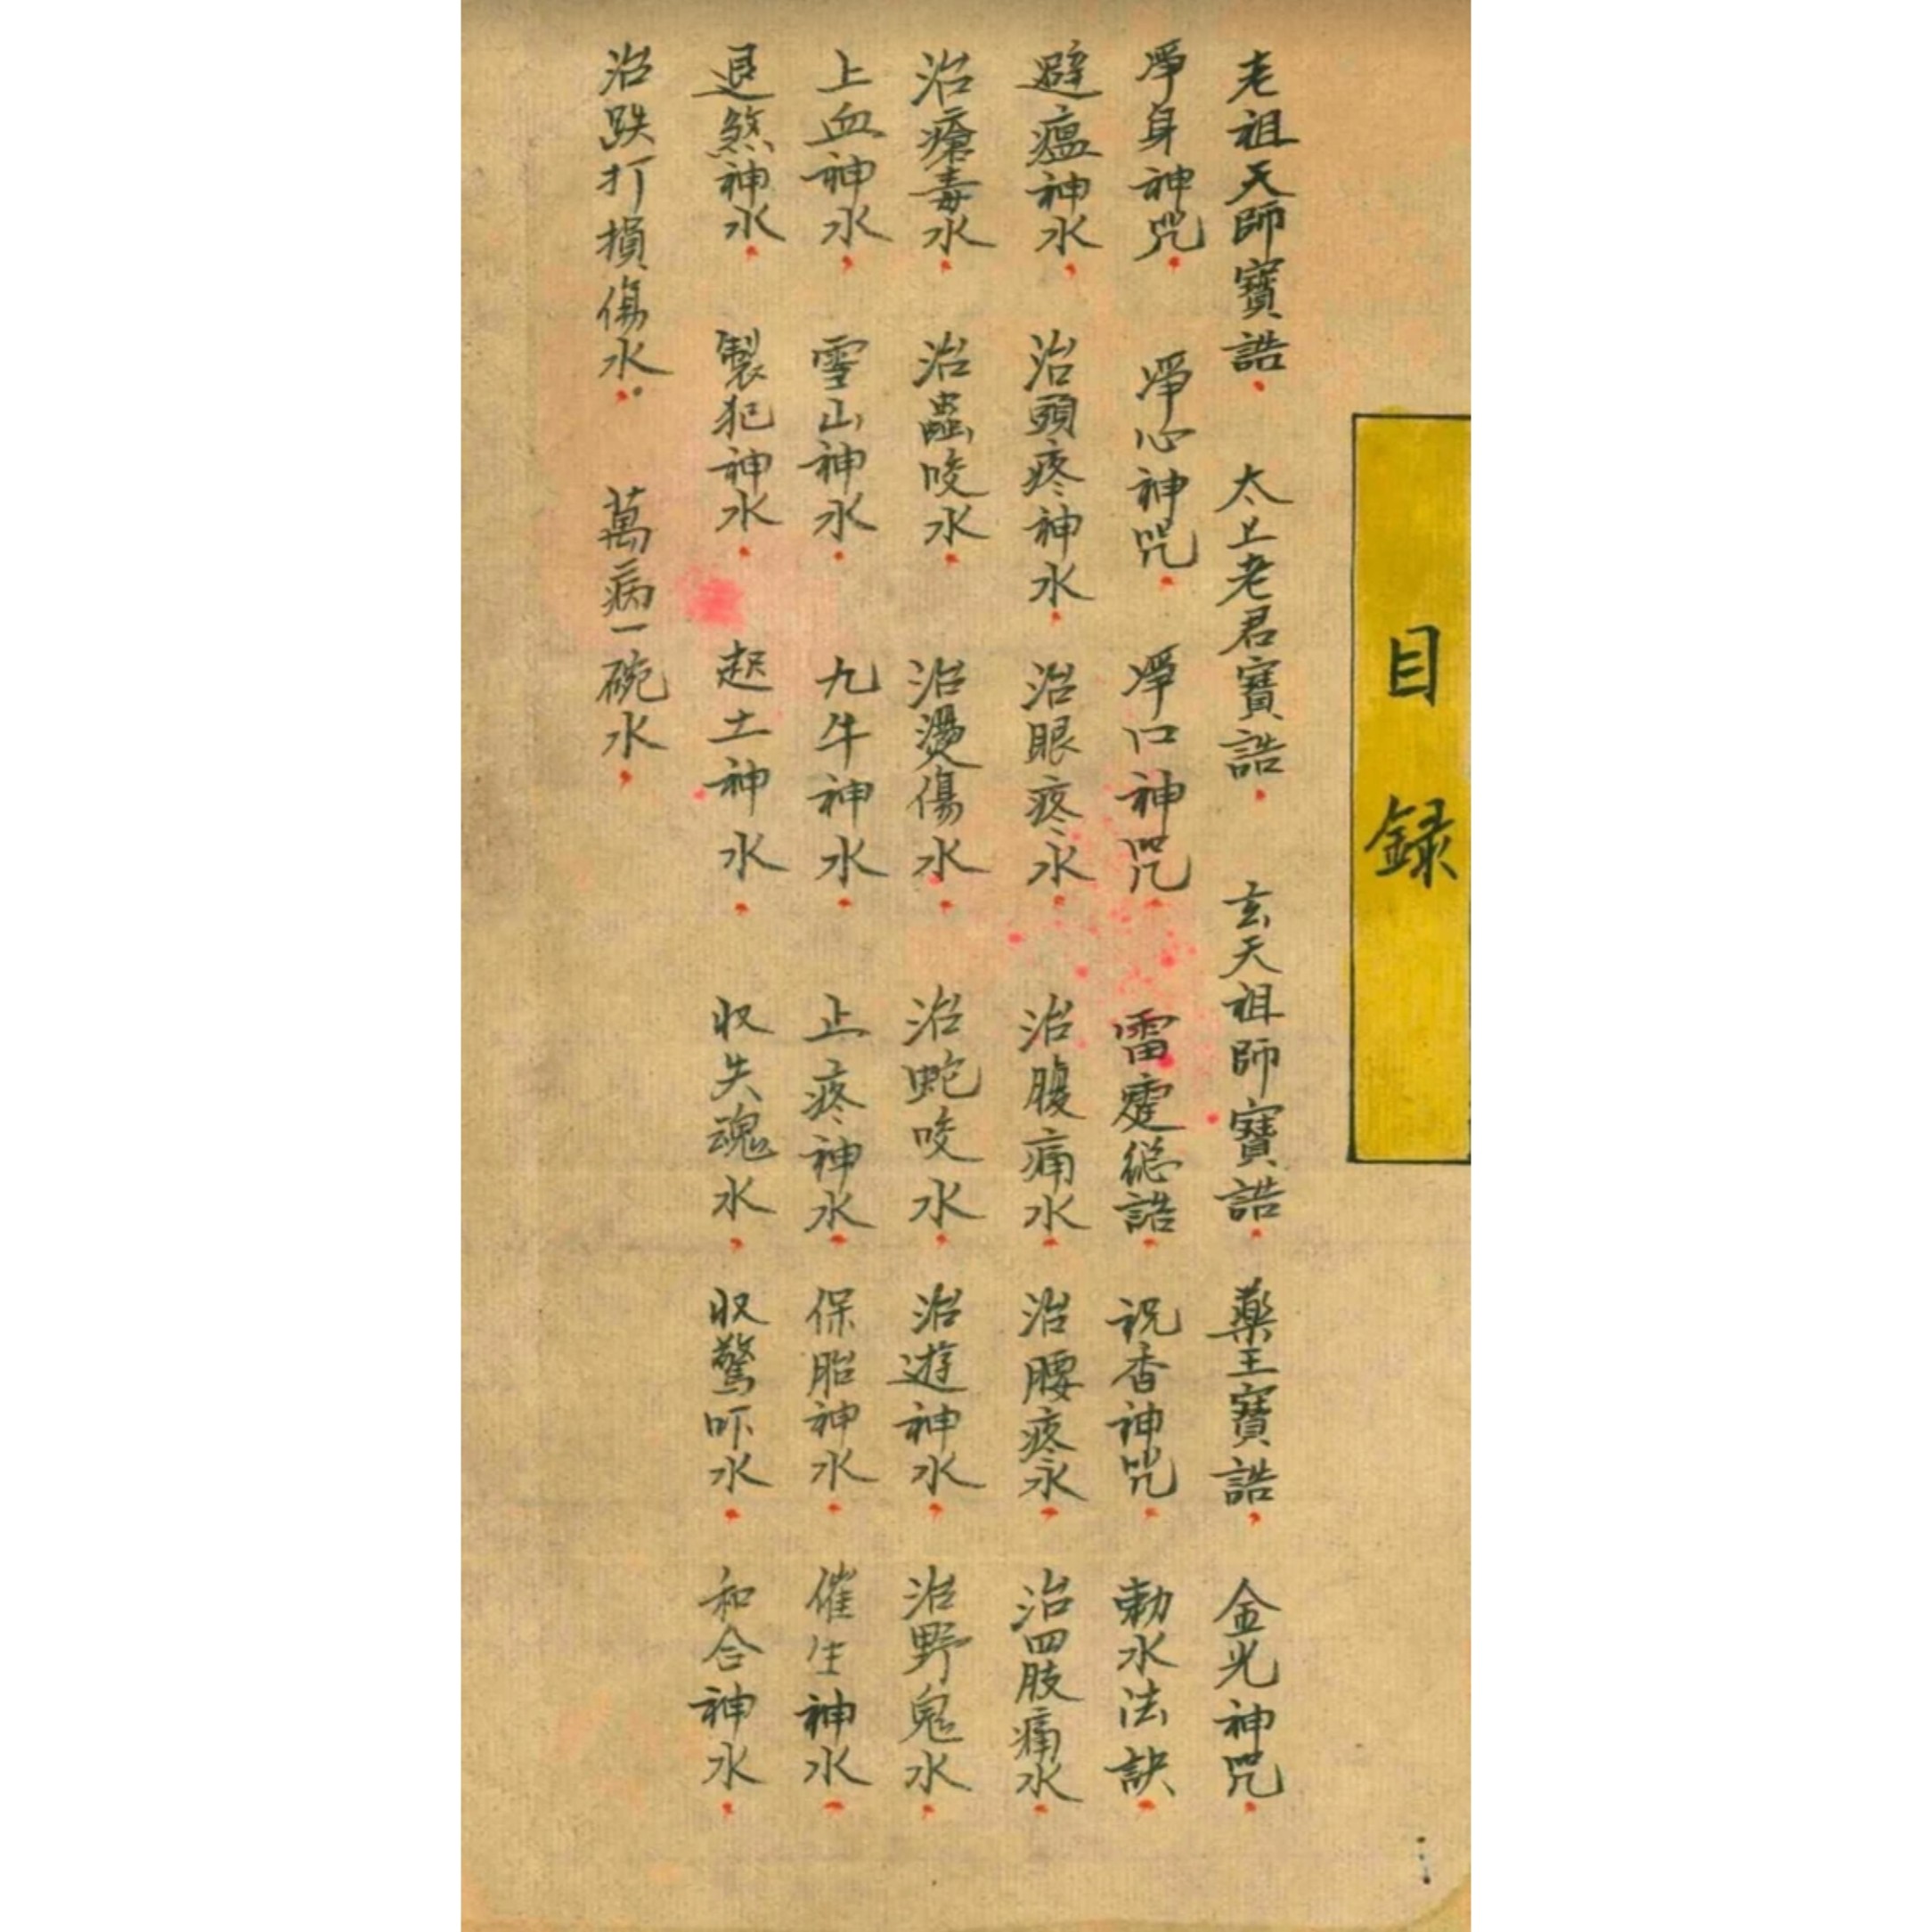 目録
老祖天師寶誥 太上老君寶誥 玄天祖師寶誥 藥王寶誥 金光神咒
淨身神咒 淨心神咒 淨口神咒 雷霆總誥 祝香神咒 勅水法訣
避瘟神水 治頭疼神水 治眼疼水 治腹痛水 治腰疼水 治四肢痛水
治瘡毒水 治蟲咬水 治燙傷水 治蛇咬水 治遊神水 治野鬼水
止血神水 雪山神水 九牛神水 止疼神水 保胎神水 催生神水
退煞神水 製犯神水 起土神水 収失魂水 収驚吓水 和合神水
治跌打損傷水 萬病一碗水